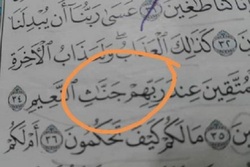 كُنَّا طَٰغِينَ ٣١ عَسَىٰ رَبُّنَآ أَن يُبْدِلَنَا
٣٢ كَذَٰلِكَ ٱلْعَذَابُ وَلَعَذَابُ ٱلْأَخِرَةِ
٣٣ لِلْمُتَّقِينَ عِندَ رَبِّهِمْ جَنَّٰتِ ٱلنَّعِيمِ ٣٤
٣٥ مَا لَكُمْ كَيْفَ تَحْكُمُونَ ٣٦ أَمْ لَكُمْ